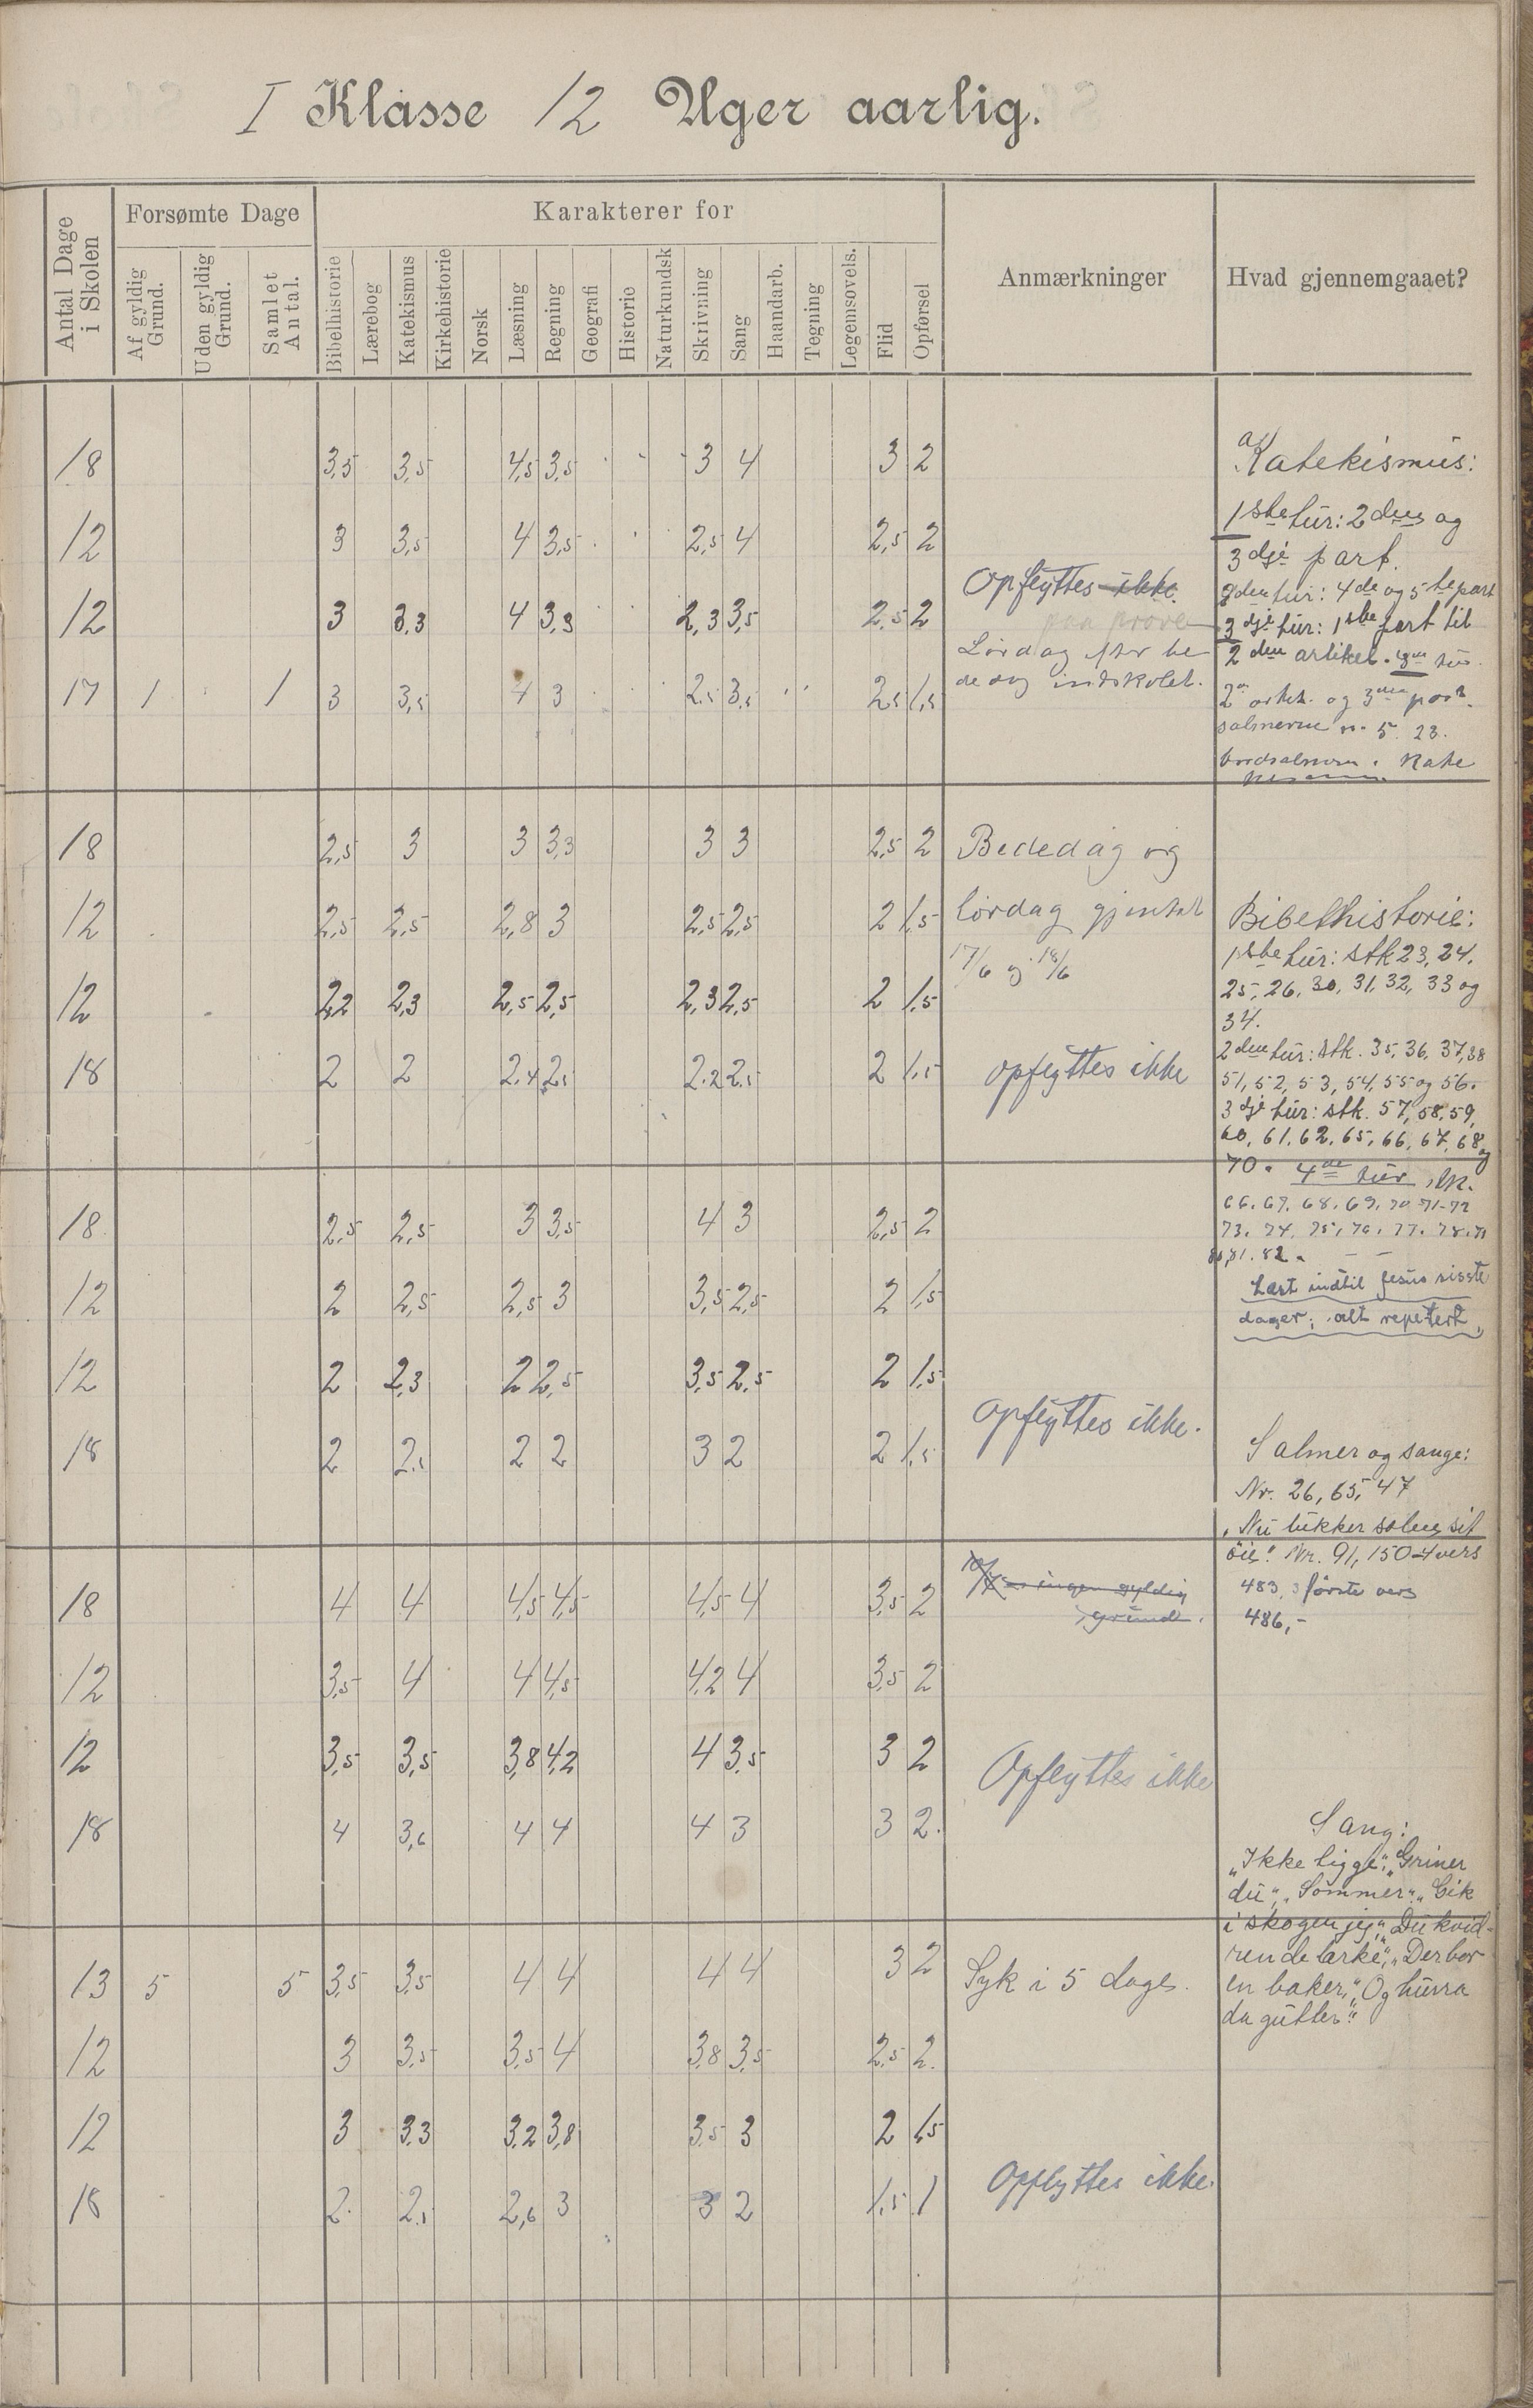 I Klasse 12 Uger aarlig.
Antal Dage i Skolen
Forsømte Dage
Karakterer for
Anmærkninger
Hvad gjennemgaaet?
Af gyldig Grund.
Uden gyldig Grund.
Samlet Antal.
Bibelhistorie
Lærebog
Katekismus
Kirkehistorie
Norsk
Læsning
Regning
Geografi
Historie
Naturkundsk
Skrivning
Sang
Haandarb.
Tegning
Legemsøvels.
Flid
Opførsel
18 3,5 3,5 4,5 3,5 3 4 3 2
12 3 3,5 4 3,5 2,5 4 2,5 2
12 3 3,3 4 3,3 2,3 3,5 2,5 2
17 1 1 3 3,5 4 3 2,5 3,5 2,5 1,5
Opflyttes ikke.
paa prøve
Lørdag
indskolet.
18 2,5 3 3 3,3 3 3 2,5 2
12 2,5 2,5 2,8 3 2,5 2,5 2 1,5
12 2,2 2,3 2,5 2,5 2,3 2,5 2 1,5
18 2 2 2.4 2,5 2.2 2,5 2 1,5
Bededag og
lørdag gjentat
17/6 og 18/6
opflyttes ikke
18 2,5 2,5 3 3,5 4 3 2,5 2
12 2 2,5 2,5 3 3,5 2,5 2 1,5
12 2 2,3 2 2,5 3,5 2,5 2 1,5
18 2 2,5 2 2 3 2 2 1,5
Opflyttes ikke.
18 4 4 4,5 4,5 4,5 4 3,5 2
12 3,5 4 4 4,5 4,2 4 3,5 2
12 3,5 3,5 3,8 4,2 4 3,5 3 2
18 4 3,6 4 4 4 3 3 2.
ingen gyldig
grund.
Opflyttes ikke
13 5 5 3,5 3,5 4 4 4 4 3 2
12 3 3,5 3,5 4 3,8 3,5 2,5 2.
12 3 3.3 3.2 3,8 3,5 3 2 1,5
18 2. 2,5 2,6 3 3 2 1,5 1
Syk i 5 dage.
Opflyttes ikke.
a) Katekismus:
1ste tur: 2den og
3dje part.
2den tur: 4de og 5te part
3dje tur: 1ste part til
2den artikel.
2 og 3 part.
salmerne nr. 5. 23.
Bibelhistorie:
1ste tur: stk 23, 24,
25, 26, 30, 31, 32, 33 og
34.
2den tur: stk. 35, 36, 37, 38
51, 52, 53, 54, 55 og 56.
3dje tur: stk. 57, 58, 59,
60, 61, 62, 65, 66, 67, 68 og
70. 4de tur stk.
66. 67. 68. 69. 70 71-72
73. 74. 75. 76. 77. 78. 79
80, 81. 82.
Læst indtil Jesus sisste
dager; alt repetert,
Salmer og sange:
Nr. 26, 65, 47
„Nu lukker solen sit
øie". Nr. 91, 150 4 vers
483, 3 første vers
486, -
Sang:
„Ikke ligge", „Griner
du", „Sommer", „Gik
i skogen jeg", „Du kvid-
rende lærke", „Der bor
en baker", „Og hurra
da gutter".